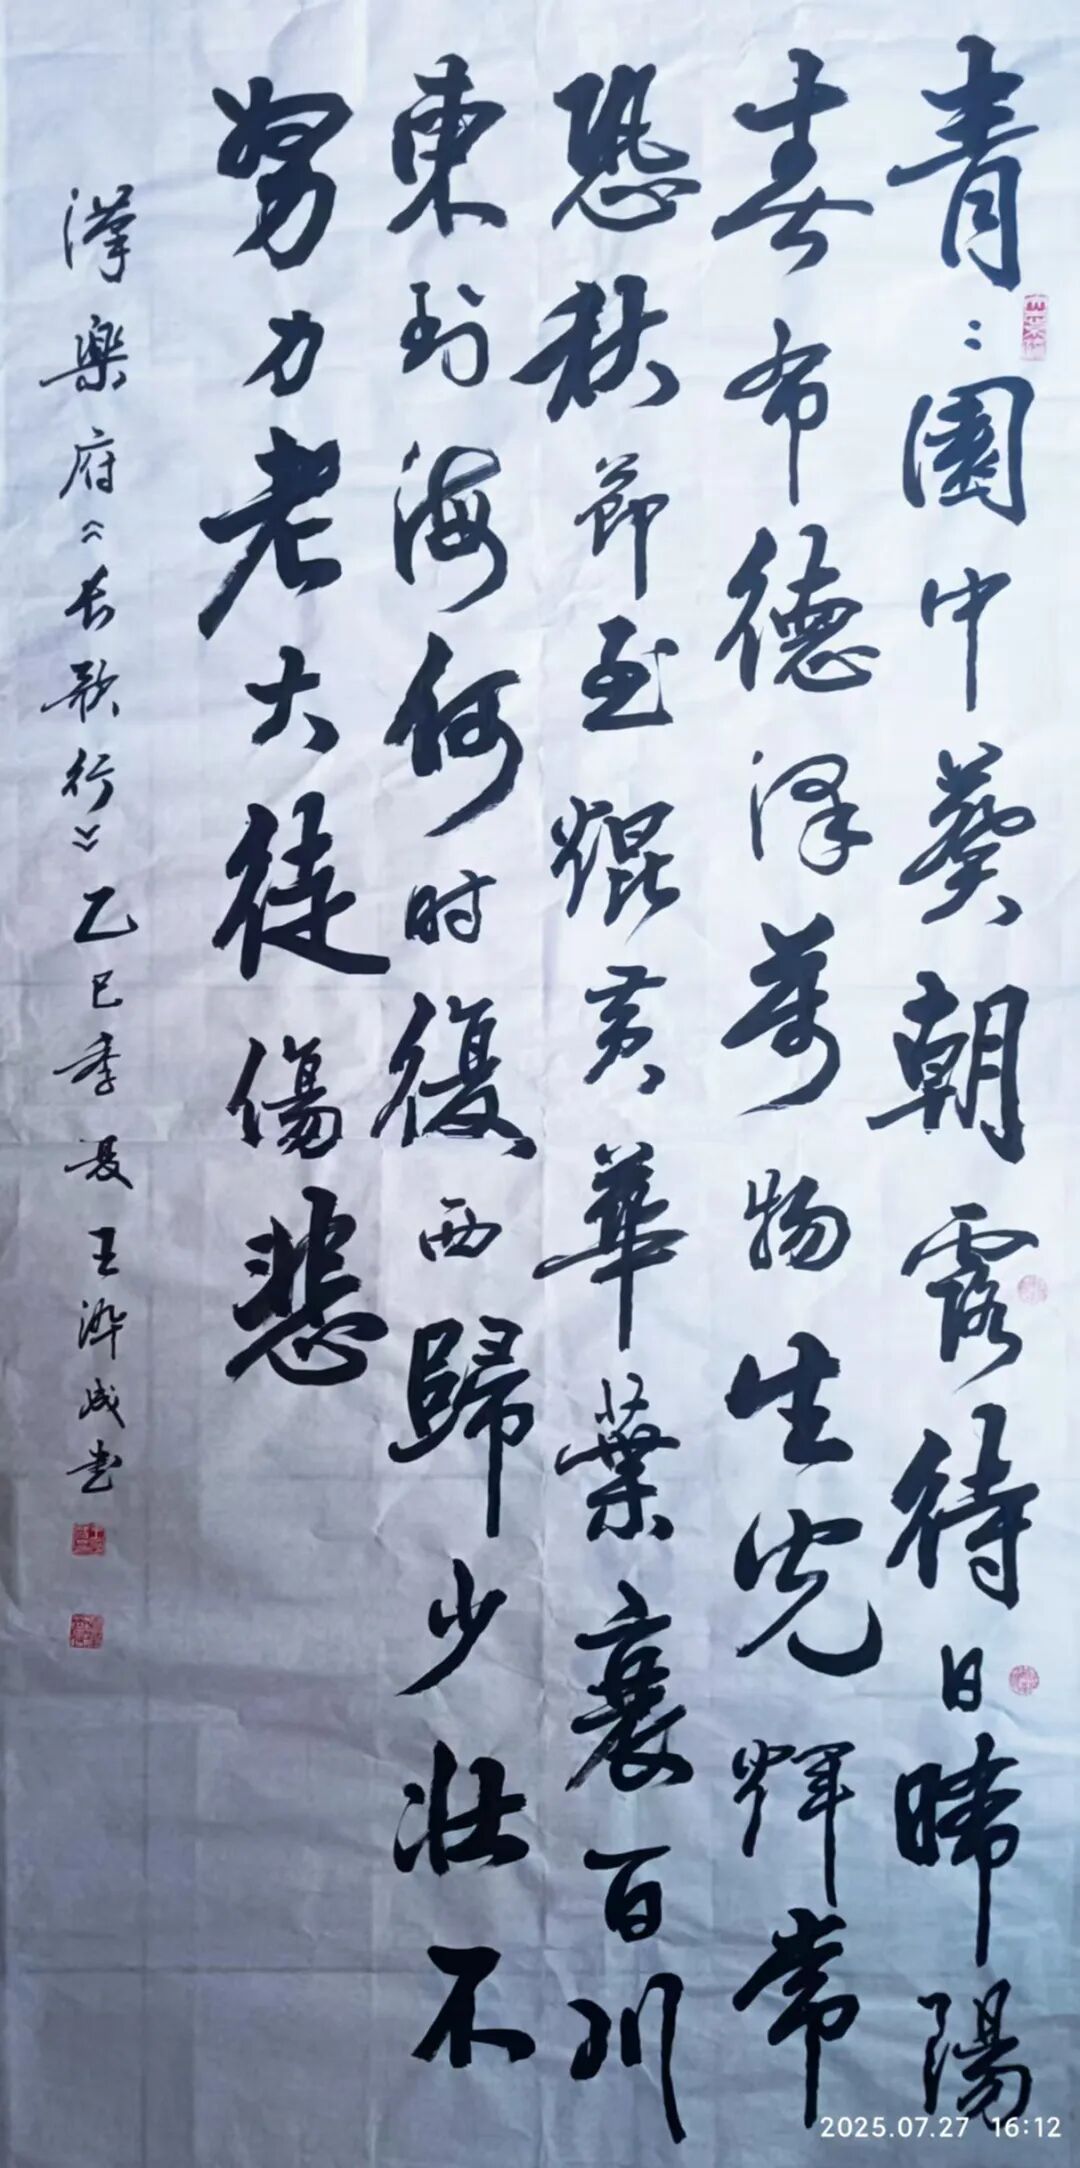 青〻園中葵朝露待日晞陽
春布德澤萬物生光輝常
恐秋節至焜黃華葉衰百川
東到海何时復西歸少壯不
努力老大徒傷悲
漢樂府《长歌行》乙巳季夏王成书
2025.07.27 16:12